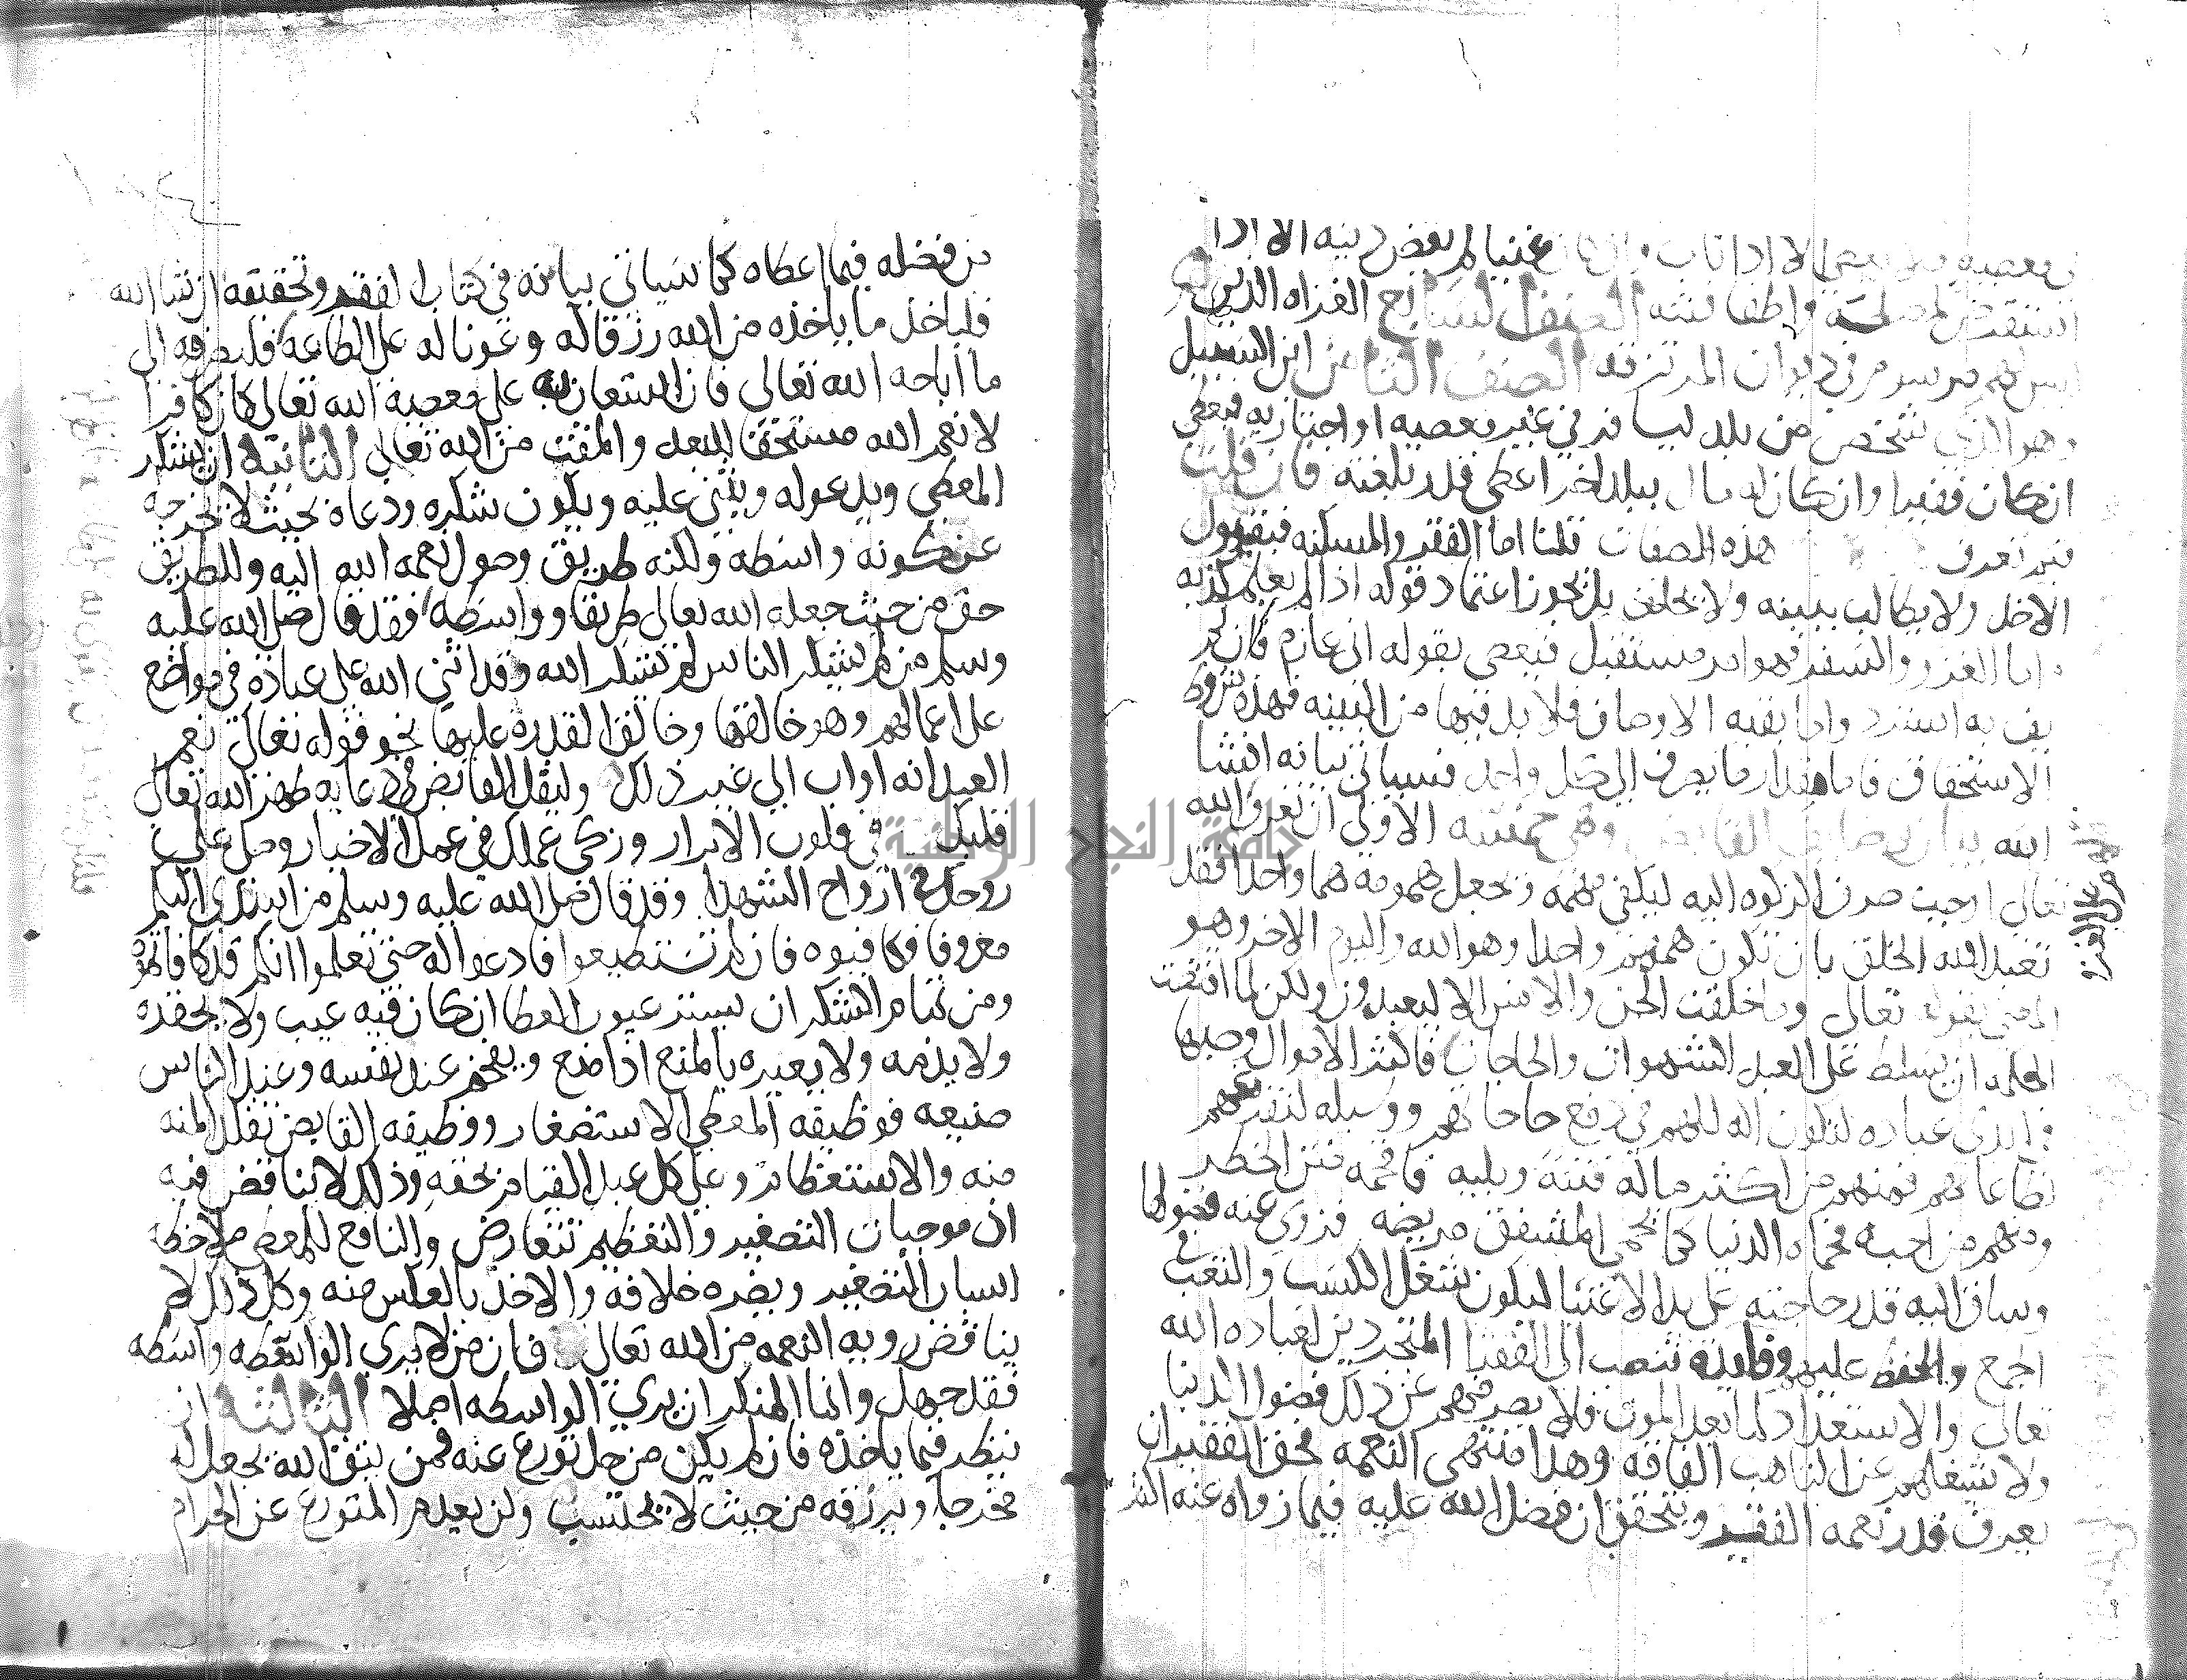 في معصية فلا يعطى الا اذا تاب وان كان غنيا لم يقض دينه الا اذا
استقرض لمصلحة واطفا فتنة الصنف السابع الغزاه الذين
ليس لهم مرسوم في ديوان المرتزقه الصنف الثامن ابن السبيل
وهو الذي شخص من بلد ليسافر في غير معصيه او اجتاز به فيعطى
ان كان فقيرا وان كان له مال ببلد اخر اعطي قدر بلغته فان قلت
فبم تعرف هذه الصفات قلنا اما الفقر والمسكنه فبقول
الاخذ ولا يطالب ببينه ولا يحلف بل يجوز اعتماد قوله اذا لم يعلم كذبه
واما الغزو والسفر فهو امر مستقبل فيعطى بقوله اني غاز فان لم
يف به استرد واما بقيه الاوصاف فلا بد فيها من البينه فهذه شروط
الاستحقاق فاما مقدار ما يصرف الى كل واحد فسياتي بيانه ان شا
الله بيان وظايف القابض وهي خمسه الاولى ان يعرف ان الله
تعالى اوجب صرف الزكوه اليه ليكفي همه ويجعل همومه هما واحدا فقد
تعبد الله الخلق بان يكون همهم واحدا وهو الله واليوم الاخر وهو
المعني بقوله تعالى وما خلقت الجن والانس الا ليعبدون ولكن لما اقتضت
الحكمه ان يسلط على العبد الشهوات والحاجات فاكثر الاموال وصبها
في ايدي عباده لتكون اله لهم في دفع حاجاتهم ووسيله لتفرغهم
لطاعاتهم فمنهم من اكثر ماله فتنة وبليه فاقحمه في الخطر
ومنهم من احبه فحماه الدنيا كما يحمي المشفق مريضه فزوى عنه فضولها
وساق اليه قدر حاجته على يد الاغنيا ليكون شغل الكسب والتعب في
الجمع والحفظ عليهم وفايدته تنصب الى الفقرا المتجردين لعباده الله
تعالى والاستعداد لما بعد الموت فلا يصرفهم عن ذلك فضول الدنيا
ولا يشغلهم عن التاهب الفاقه وهذا منتهى النعمه فحق الفقير ان
يعرف قدر نعمه الفقر ويتحقق ان فضل الله عليه فيما زواه عنه اكثر
من فضله فيما اعطاه كما سياتي بيانه في كتاب الفقر وتحقيقه ان شا الله
فلياخذ ما ياخذه من الله رزقا له وعونا له على الطاعه فليصرفه الى
ما اباحه الله تعالى فان استعان به على معصية الله تعالى كان كافرا
لانعم الله مستحقا للبعد والمقت من الله تعالى الثانية ان يشكر
المعطي ويدعو له ويثني عليه ويكون شكره ودعاه بحيث لا يخرجه
عن كونه واسطه ولكنه طريق وصول نعمه الله اليه وللطريق
حق من حيث جعله الله تعالى طريقا وواسطه فقد قال صلى الله عليه
وسلم من لم يشكر الناس لم يشكر الله وقد اثنى الله على عباده في مواضع
على اعمالهم وهو خالقها وخالق القدره عليها نحو قوله تعالى نعم
العبد انه اواب الى غير ذلك وليقل القابض في دعايه طهر الله تعالى
قلبك في قلوب الابرار وزكى عملك في عمل الاخيار وصلى على
روحك في ارواح الشهدا وقد قال صلى الله عليه وسلم من اسدى اليكم
معروفا فكافيوه فان لم تستطيعوا فادعوا له حتى تعلموا انكم قد كافاتموه
ومن تمام الشكر ان يستر عيوب العطا ان كان فيه عيب ولا يحقره
ولا يذمه ولا يعيره بالمنع اذا منع ويفخم عند نفسه وعند الناس
صنيعه فوظيفه المعطي الاستصغار ووظيفه القابض تقلد المنه
منه والاستعظام وعلى كل عبد القيام بحقه وذلك لا يناقض فيه
ان موجبات التصغير والتعظيم تتعارض والنافع للمعطي ملاحظه
اسباب التصغير ويضره خلافه والاخذ بالعكس منه وكل ذلك لا
يناقض رويه النعمه من الله تعالى فان من لا يرى الواسطه واسطه
فقد جهل وانما المنكر ان يرى الواسطه اصلا الثالثة ان
ينظر فيما ياخذه فان لم يكن من حل تورع عنه فمن يتق الله يجعل له
مخرجا ويرزقه من حيث لا يحتسب ولن يعدم المتورع عن الحرام
جامعة النجاح الوطنية